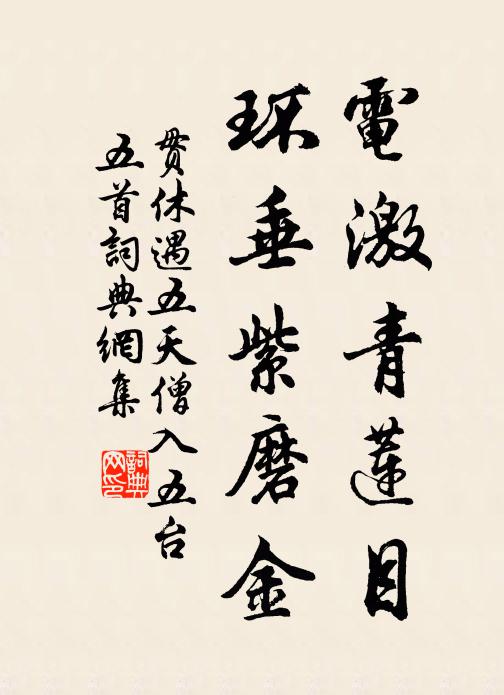 電激青蓮目
环垂紫磨金
貫休遇五天僧入五台
五首詞典網集
詞典
网印